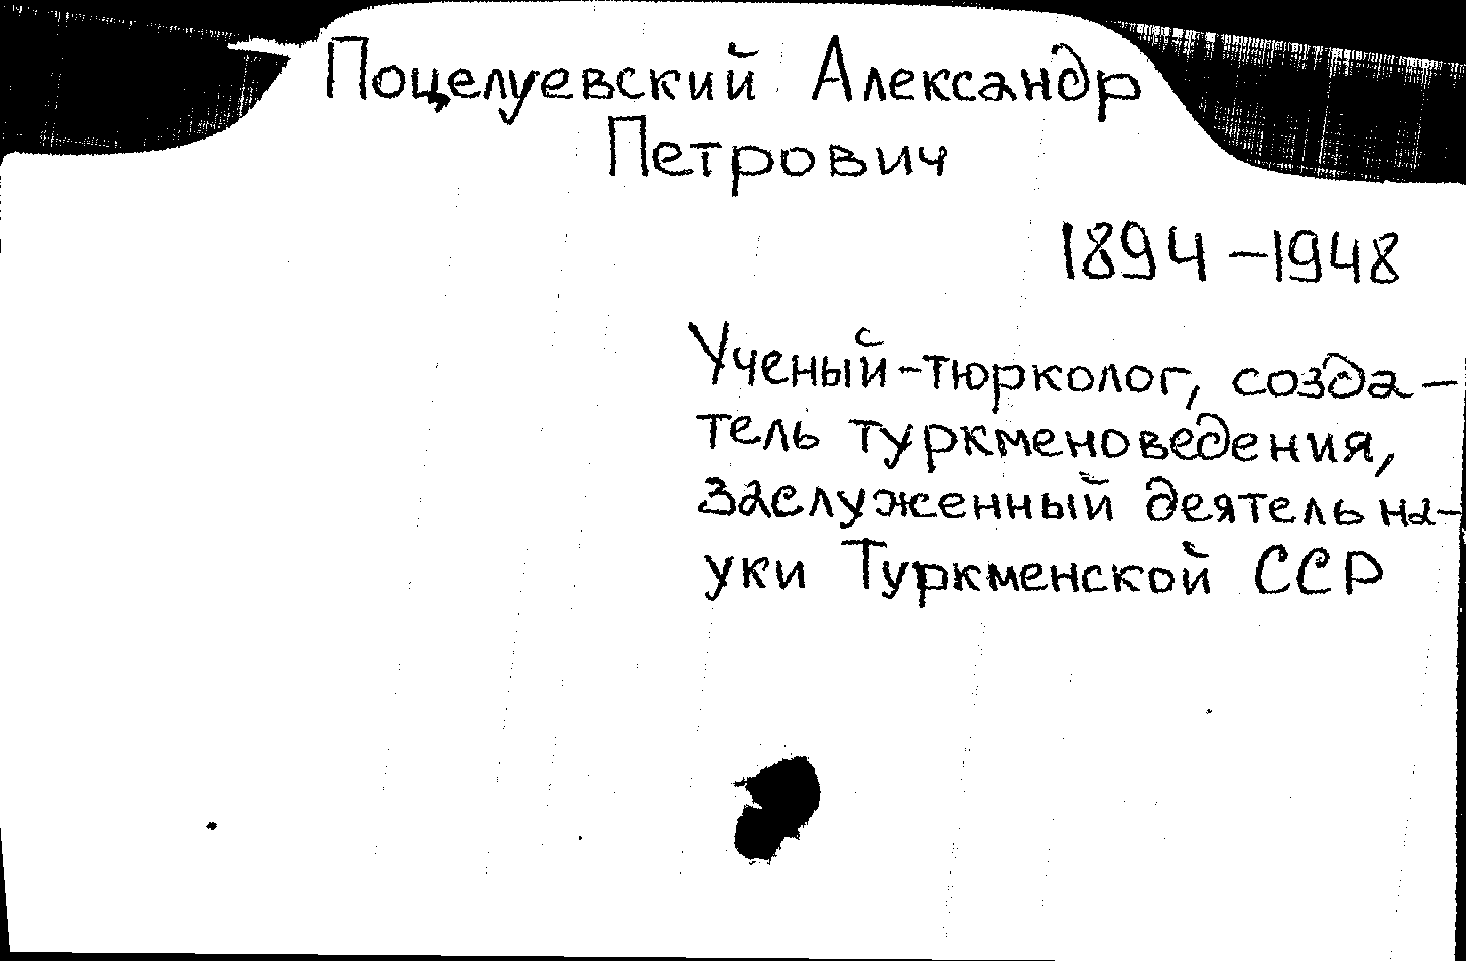 Поцелуевский Александр
Петрович
1894-1948
Ученый-тюрколог, созда-
тель туркменоведения,
заслуженный деятель на-
уки Туркменской ССР